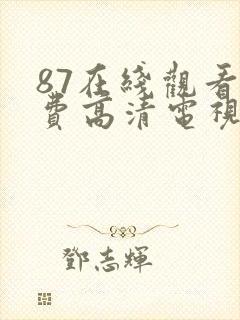 87在綫觀看
費高清電視
鄧志輝